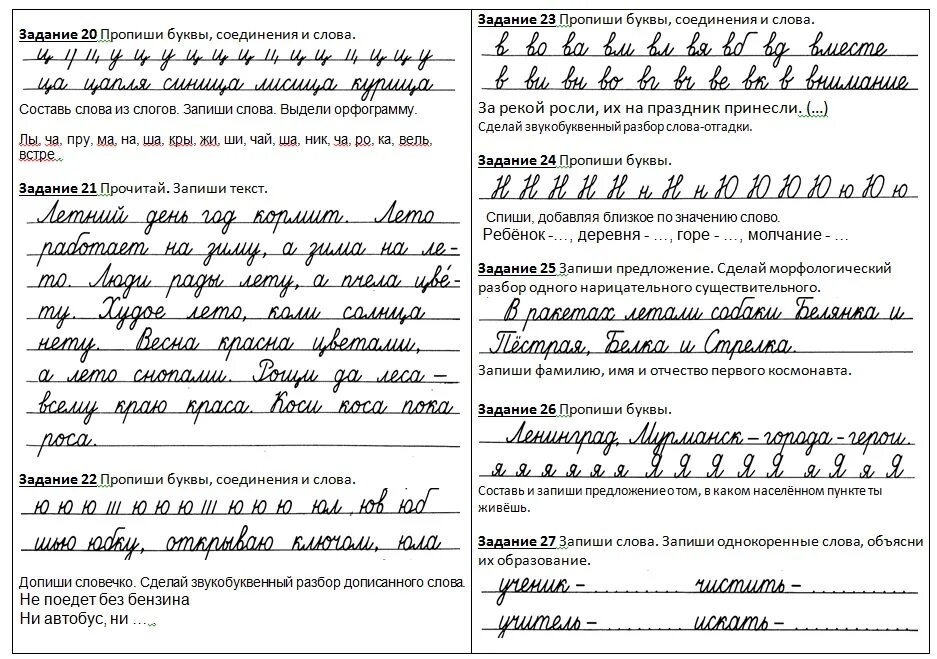 Задание 20 Пропиши буквы, соединения и слова.
ц ц ц, у ц у ц ц ц ц ц ц, ц ц у
ца цапля синица лисица курица
Составь слова из слогов. Запиши слова. Выдели орфограмму.
Лы, ча, пру, ма, на, ша, кры, жи, ши, чай, ша, ник, ча, ро, ка, вель,
встре.
Задание 21 Прочитай. Запиши текст.
Летний день год кормит. Лето
работает на зиму, а зима на ле-
то. Люди рады лету, а пчела цве-
ту. Худое лето, коли солнца
нету. Весна красна цветами,
а лето снопами. Рощи да леса –
всему краю краса. Коси коса пока
роса.
Задание 22 Пропиши буквы, соединения и слова.
ю ю ю ю ю ю ю ю ю юл, юв юб
шью юбку, открываю ключом, юла
Допиши словечко. Сделай звукобуквенный разбор дописанного слова.
Не поедет без бензина
Ни автобус, ни ...
Задание 23 Пропиши буквы, соединения и слова.
в во ва вм вл вя вб вд вместе
в ви вн во вг вч ве вк в внимание
За рекой росли, их на праздник принесли. (...)
Сделай звукобуквенный разбор слова-отгадки.
Задание 24 Пропиши буквы.
Н Н Н Н Н н Н н Ю Ю Ю Ю ю Ю ю
Спиши, добавляя близкое по значению слово.
Ребёнок -..., деревня - ..., горе - ..., молчание - ...
Задание 25 Запиши предложение. Сделай морфологический
разбор одного нарицательного существительного.
В ракетах летали собаки Белянка и
Пёстрая, Белка и Стрелка.
Запиши фамилию, имя и отчество первого космонавта.
Задание 26 Пропиши буквы.
Ленинград, Мурманск – города - герои.
я я я я я я Я Я Я Я Я я Я я Я
Составь и запиши предложение о том, в каком населённом пункте ты
живёшь.
Задание 27 Запиши слова. Запиши однокоренные слова, объясни
их образование.
ученик – ............ чистить – ............
учитель – ............ искать – ............